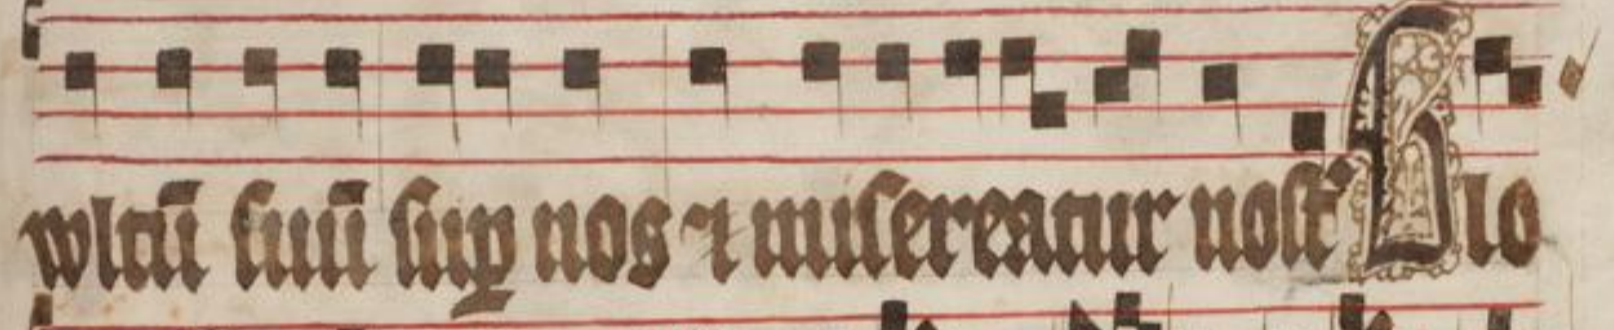 wltū suū sup nos ⁊ misereatur nost Glo